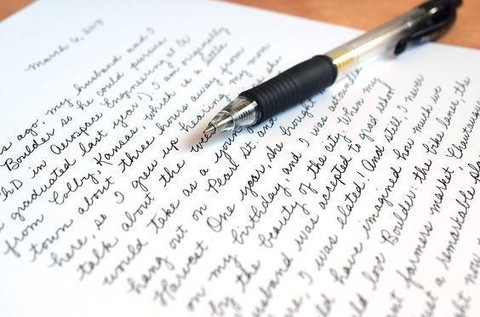 March 6, 2013
ago, my husband and I
Boulder so he could pursue
PhD in Aerospace Engineering at CU
graduated last year!) I am originally
from Colby, Kansas, which is a little
town about three hours away from
here, so I grew up hearing my mom
talk about the
would take as a she
hang out on Pearl St. and
Harvest One year, she brought
on my birthday and I was
by the beauty of the city. When my
husband was accepted to grad school
I was elated! And still, I never
could have imagined how much we
would love Boulder: the bike lanes, the
farmers market,
a remarkable
right now